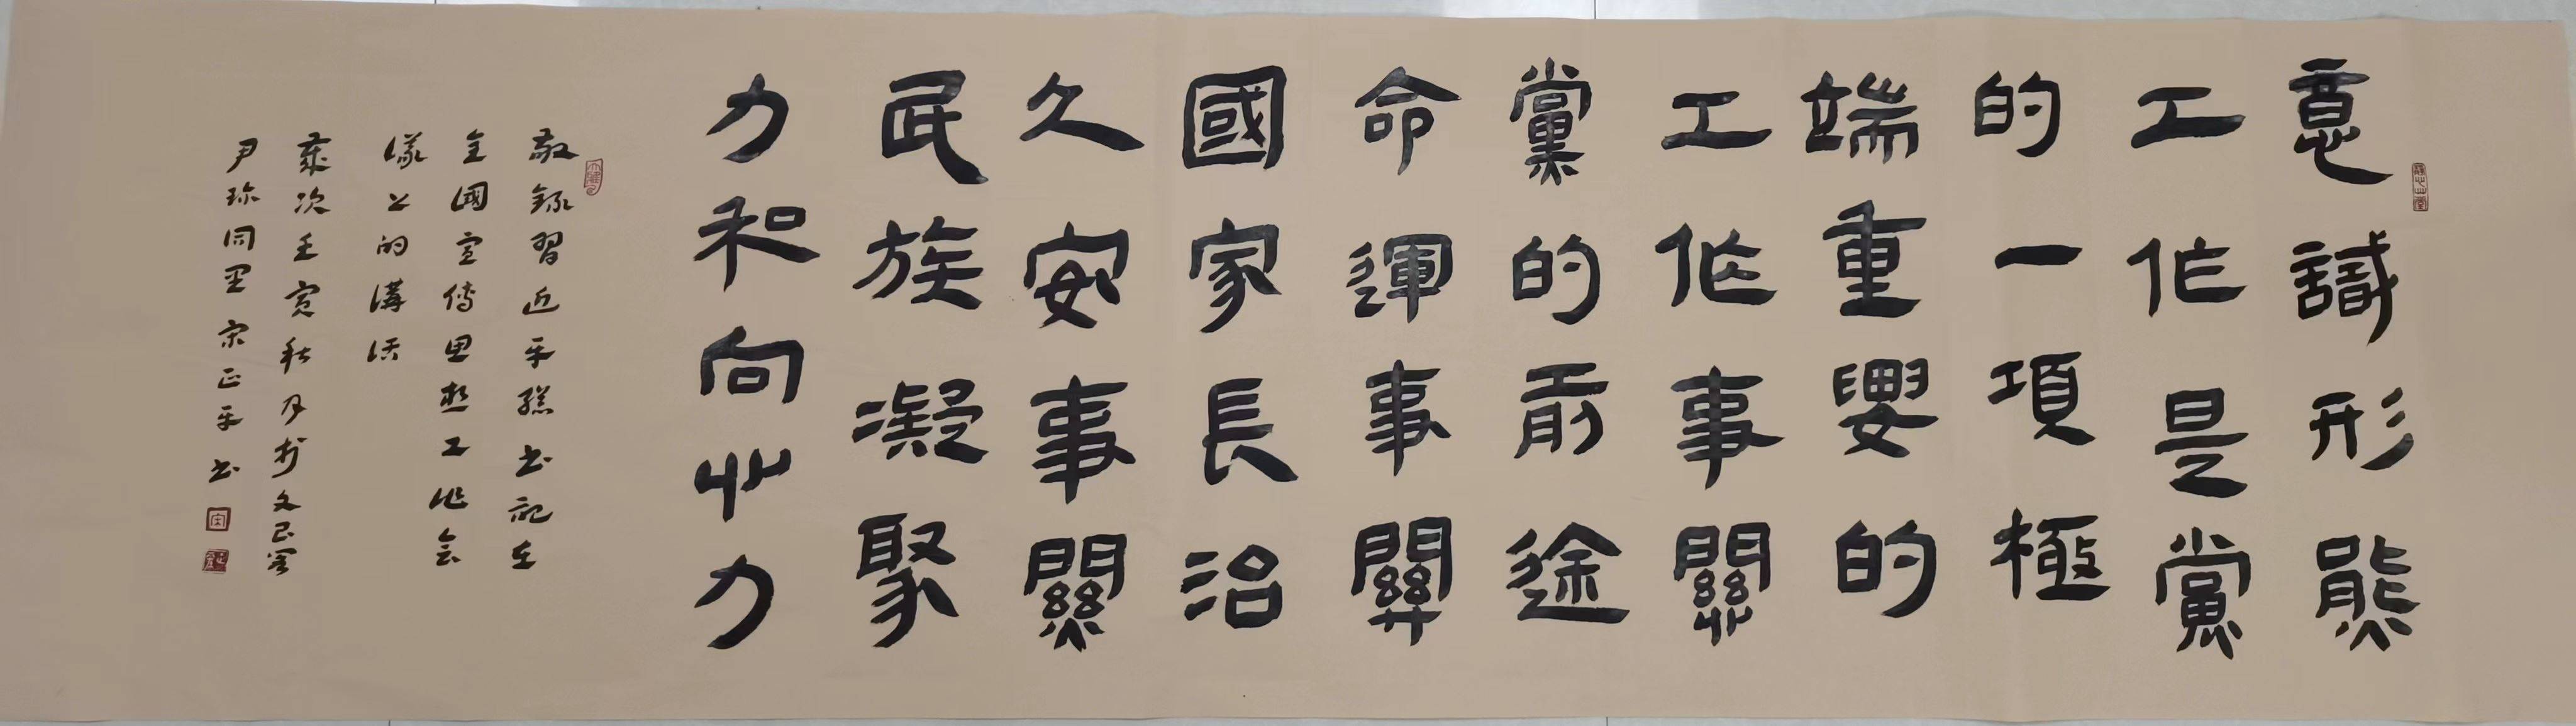 意識形態
工作是黨
的一項極
端重要的
工作事關
黨的前途
命運事關
國家長治
久安事關
民族凝聚
力和向心力
敬錄習近平總書記在
全國宣傳思想工作會
議上的講話
歲次壬寅秋月於文昌閣
尹珍同里 宋正平書